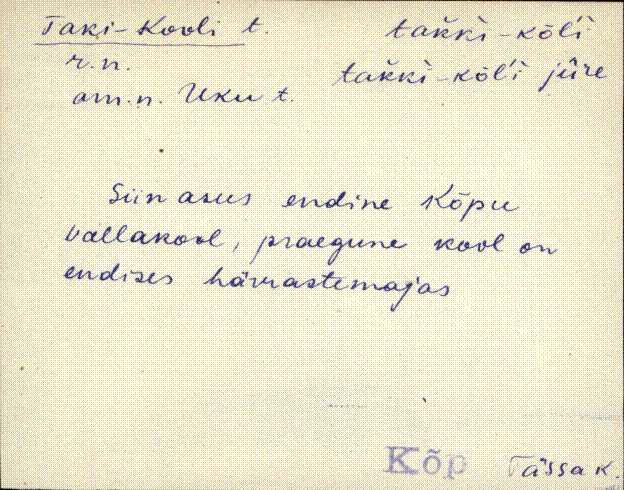 Taki-Kooli t. takki-kõl'i
r.n. takki-kõl'i jüre
am.n. Uku t.
Siin asus endine Kõpu
vallakool, praegune kool on
endises härrastemajas
Kõp Tässa k.